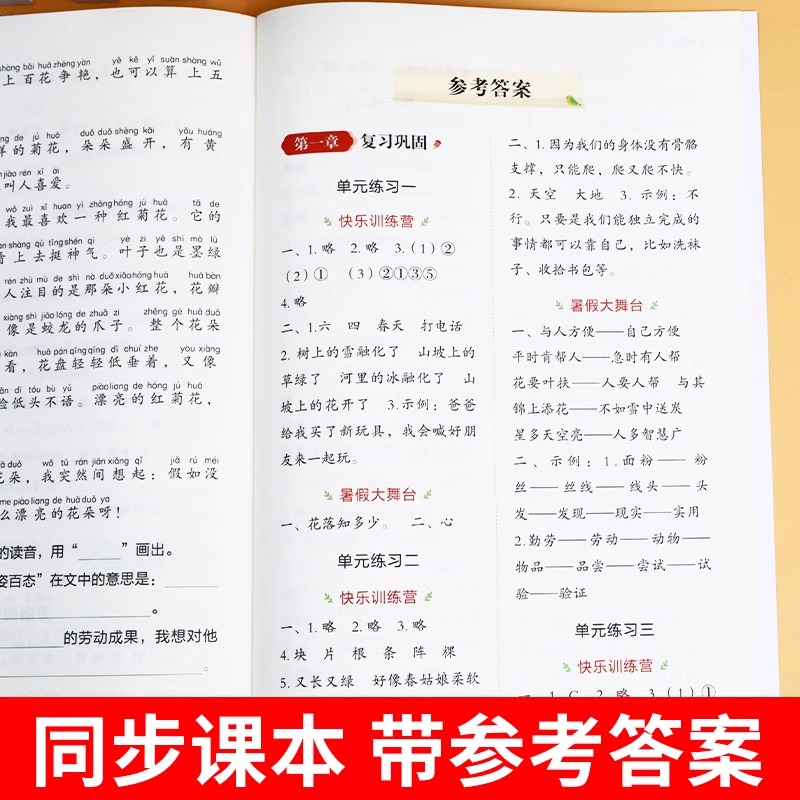 shàng bǎi huā zhēng yàn yě kě yǐ suàn shàng wǔ
上百花争艳，也可以算上五
de jú huā duǒ duǒ shèng kāi yǒu huáng
样的菊花，朵朵盛开，有黄
jiào rén xǐ ài
叫人喜爱。
wǒ zuì xǐ huan yì zhǒng hóng jú huā tā de
我最喜欢一种红菊花。它的
shàng qù tǐng shén qì yè zi yě shì mò lǜ
看上去挺神气。叶子也是墨绿
rén zhù mù de shì nà duǒ xiǎo hóng huā huā bàn
人注目的是那朵小红花，花瓣
xiàng shì jiāo lóng de zhuǎ zi zhěng gè huā duǒ
像是蛟龙的爪子。整个花朵
kàn huā pán qīng qīng dī chuí zhe yòu xiàng
看，花盘轻轻低垂着，又像
dī tóu bù yǔ piào liang de hóng jú huā
脸低头不语。漂亮的红菊花，
duǒ wǒ tū rán jiān xiǎng qǐ jiǎ rú méi
花朵，我突然间想起：假如没
me piào liang de huā duǒ ya
么漂亮的花朵呀！
的读音，用“______”画出。
姿百态”在文中的意思是：______
______。
______的劳动成果，我想对他
______。
参考答案
第一章 复习巩固
单元练习一
快乐训练营
一、1.略 2.略 3.（1）②
（2）① （3）②①③⑤
4.略
二、1.六 四 春天 打电话
2.树上的雪融化了 山坡上的
草绿了 河里的冰融化了 山
坡上的花开了 3.示例：爸爸
给我买了新玩具，我会喊好朋
友来一起玩。
暑假大舞台
一、花落知多少。 二、心
单元练习二
快乐训练营
一、1.略 2.略 3.略
4.块 片 根 条 阵 棵
5.又长又绿 好像春姑娘柔软
二、1.因为我们的身体没有骨骼
支撑，只能爬，爬又爬不快。
2.天空 大地 3.示例：不
行。只要是我们能独立完成的
事情都可以靠自己，比如洗袜
子、收拾书包等。
暑假大舞台
一、与人方便——自己方便
平时肯帮人——急时有人帮
花要叶扶——人要人帮 与其
锦上添花——不如雪中送炭
星多天空亮——人多智慧广
二、示例：1.面粉——粉
丝——丝线——线头——头
发——发现——现实——实用
2.勤劳——劳动——动物——
物品——品尝——尝试——试
验——验证
单元练习三
快乐训练营
一、1.C 2.略 3.（1）①
同步课本 带参考答案